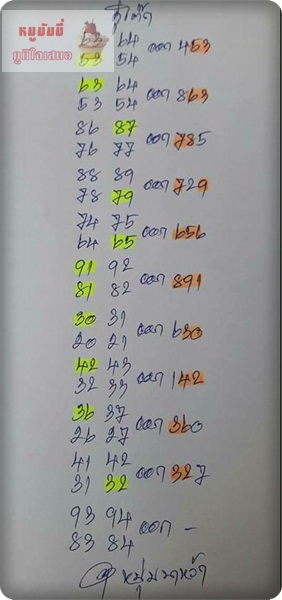 หมูมัมมี่
ภูมิใจเสนอ
64
53 54 ออก 453
63 64
53 54 ออก 863
86 87
76 77 ออก 785
88 89
78 79 ออก 729
74 75
64 65 ออก 656
91 92
81 82 ออก 891
30 31
20 21 ออก 630
42 43
32 33 ออก 142
36 37
26 27 ออก 360
41 42
31 32 ออก 327
93 94
83 84 ออก -